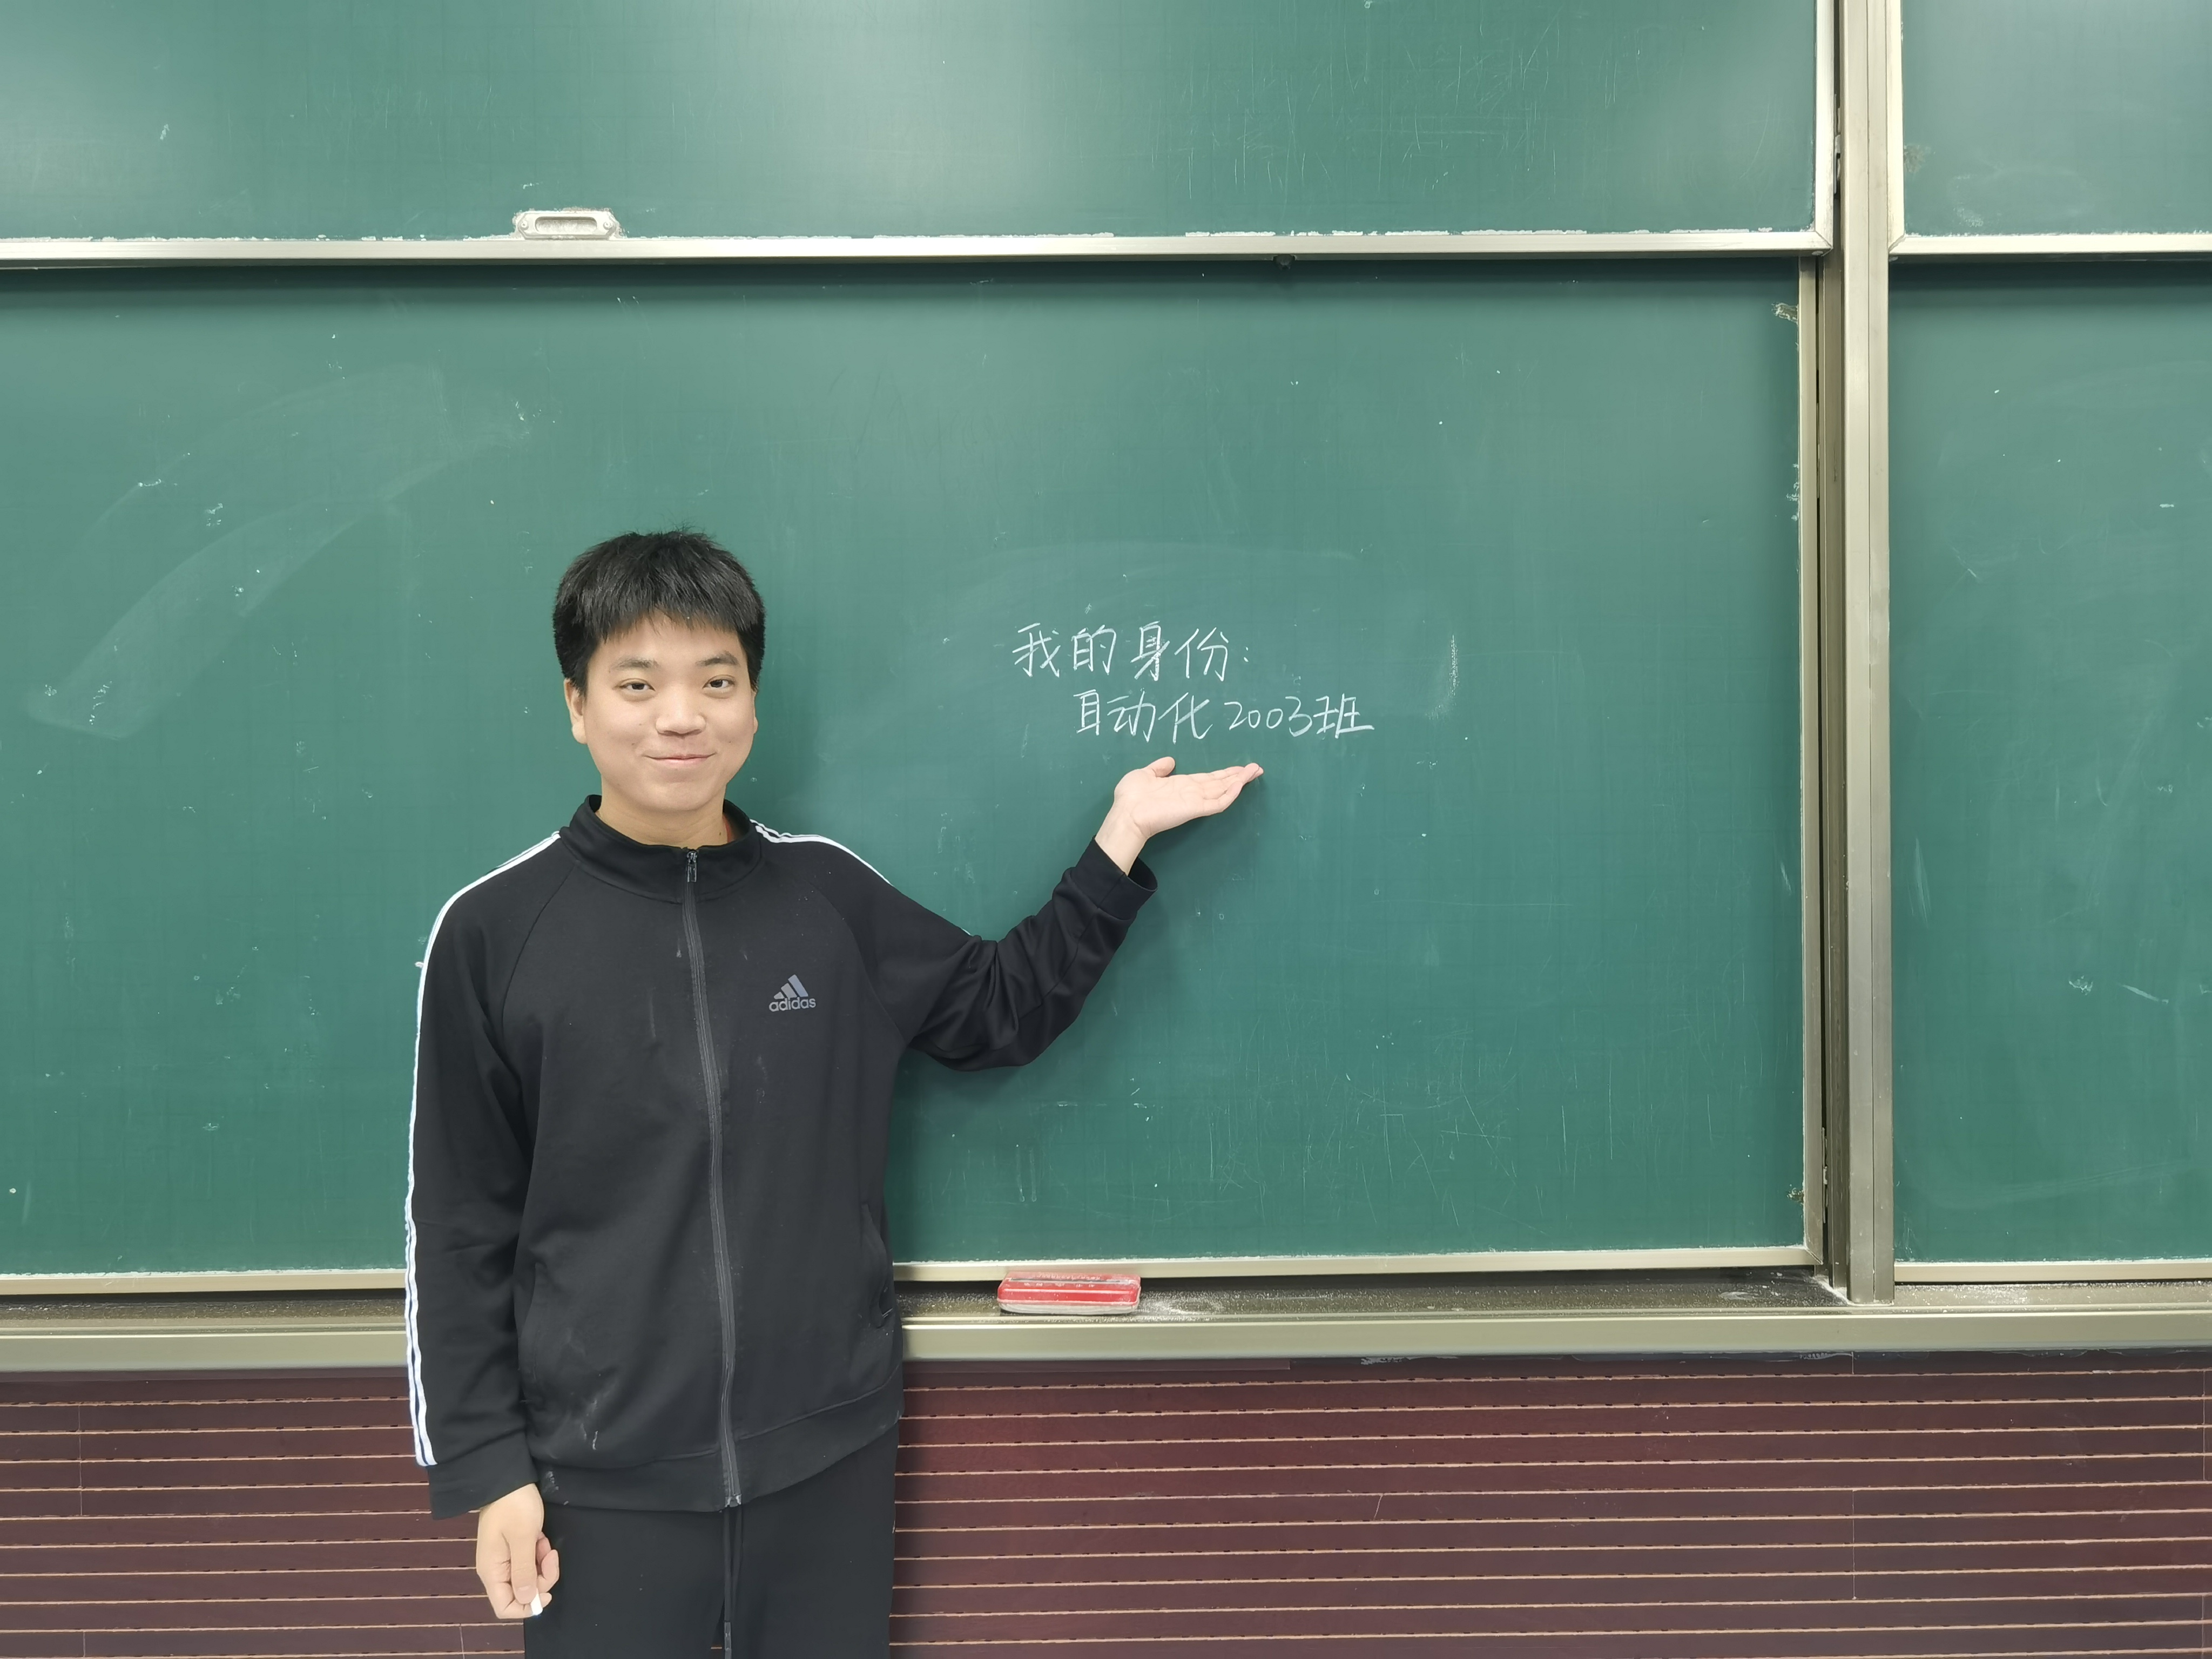 我的身份:
自动化2003班
adidas